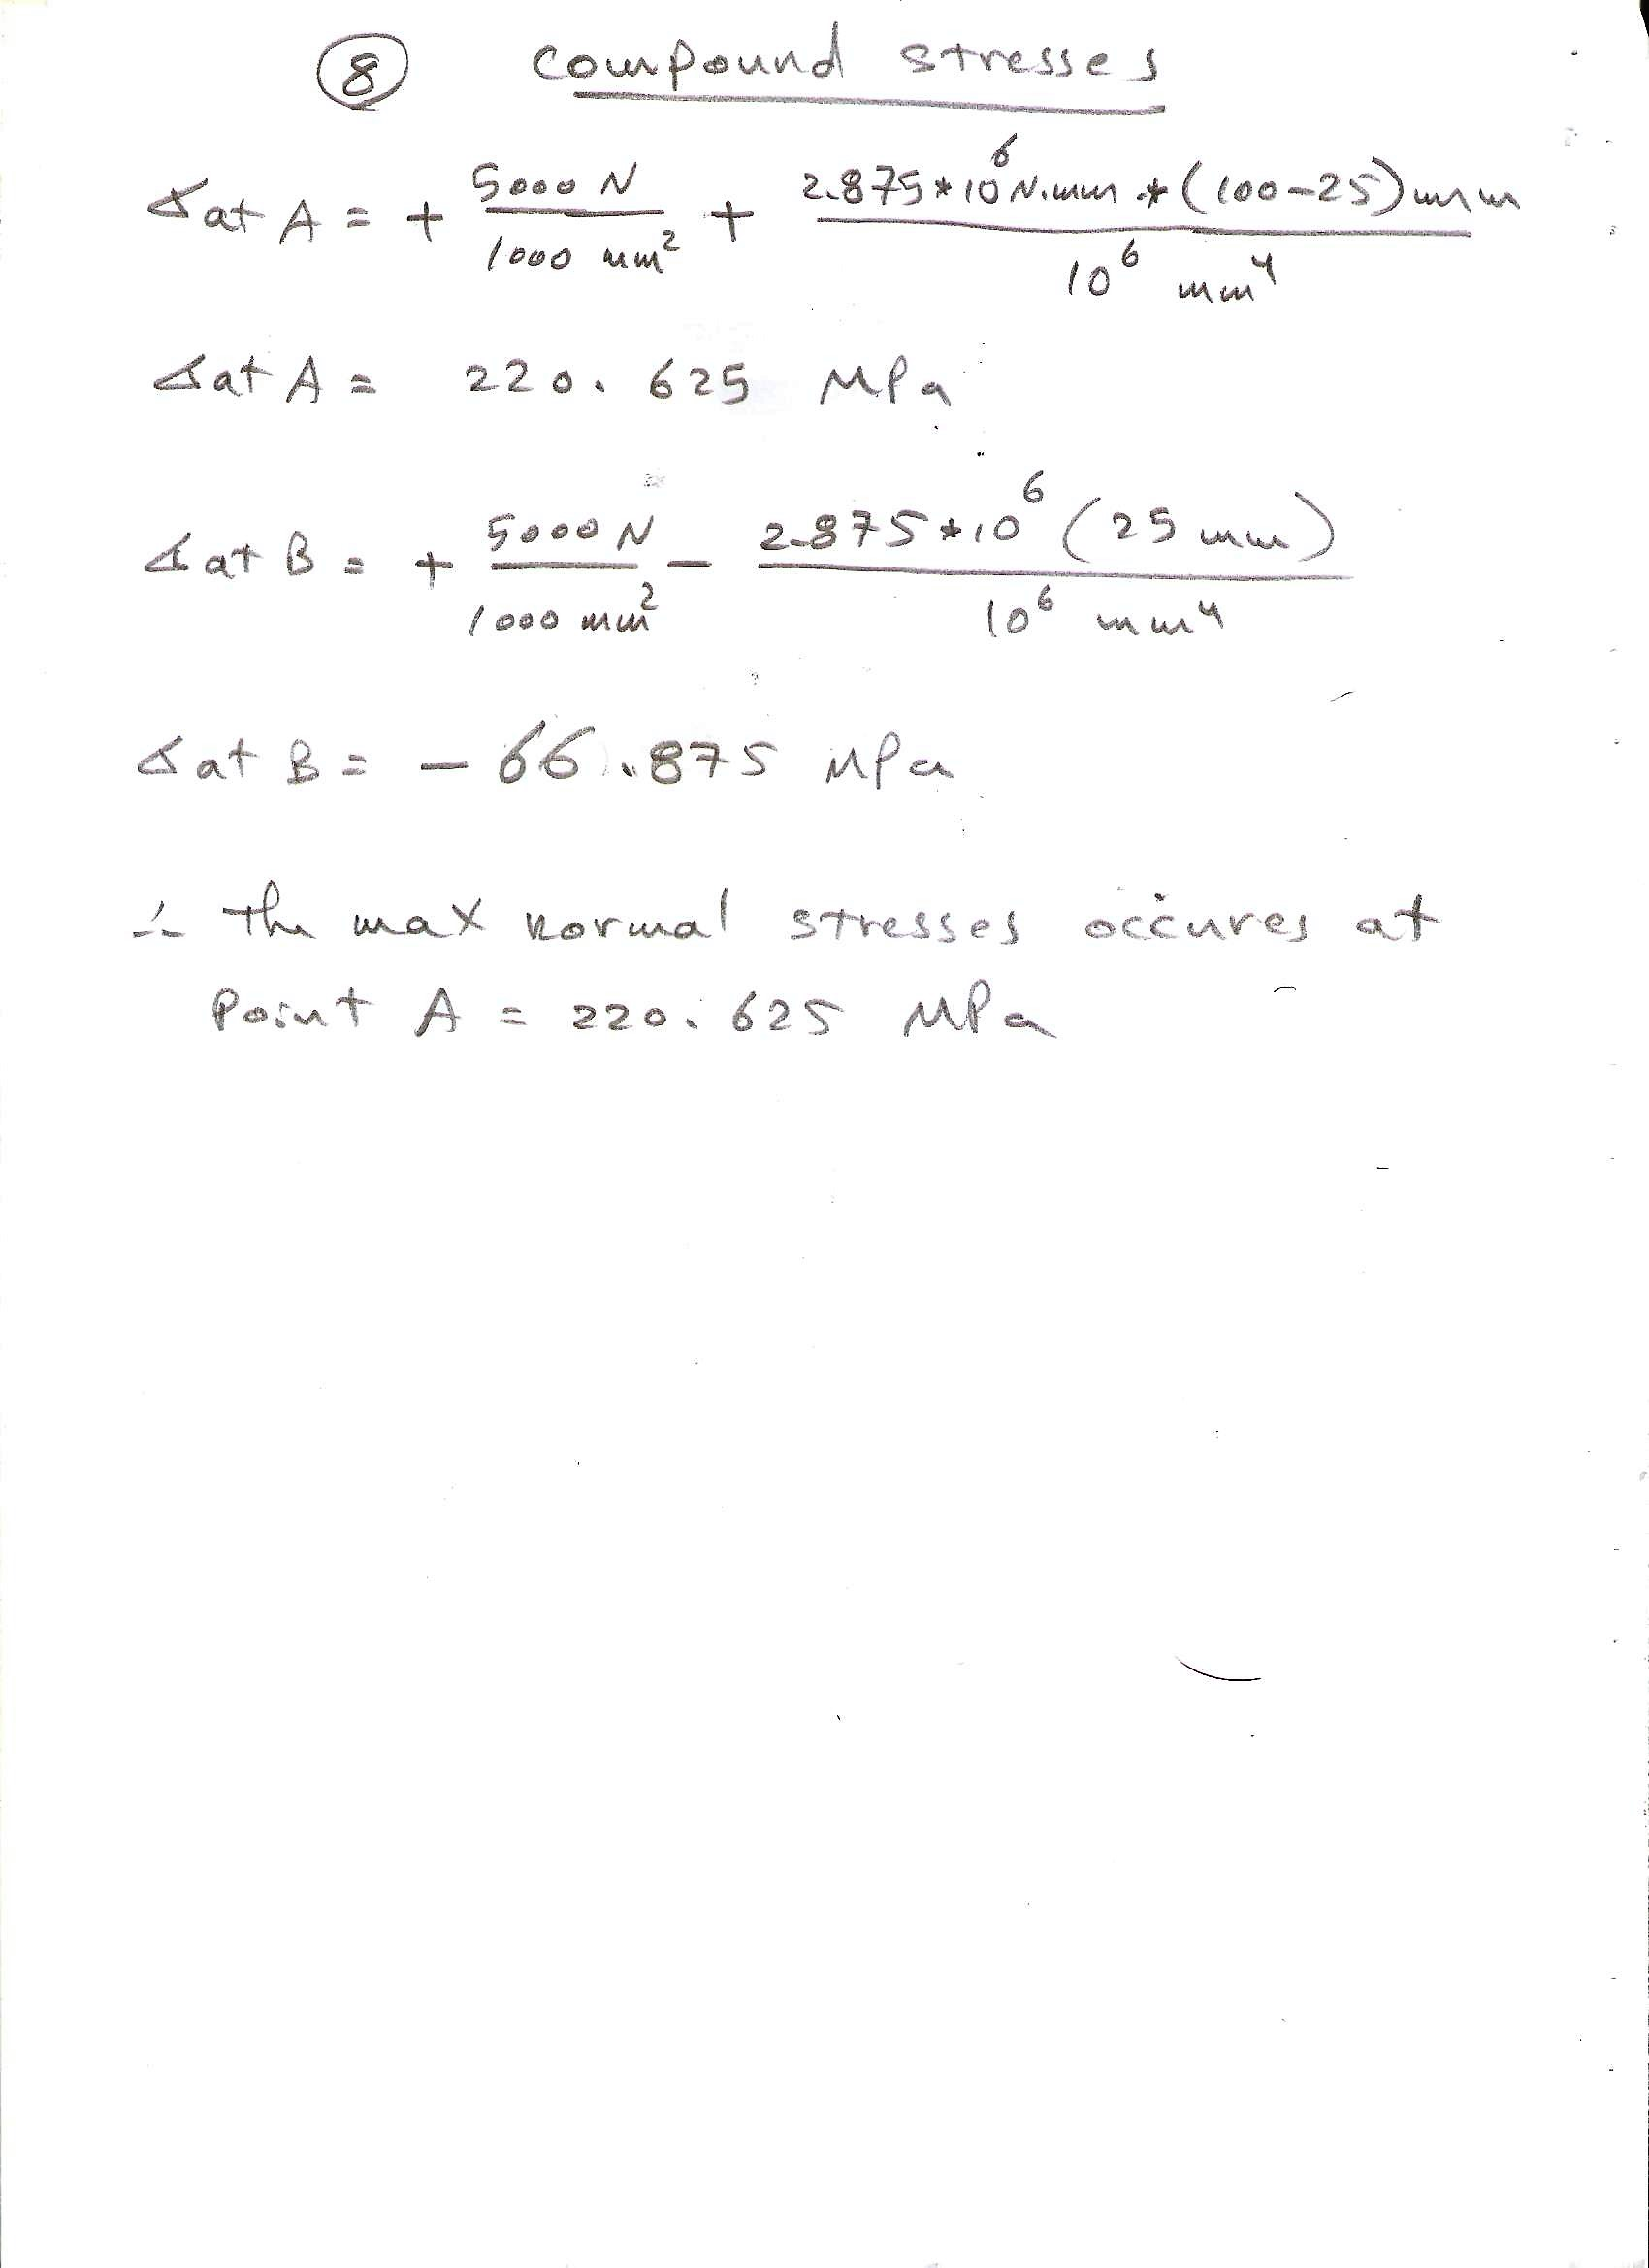 8 Compound stresses
σ at A = + 5000 N / 1000 mm² + 2.875 * 10⁶ N.mm * (100-25) mm / 10⁶ mm⁴
σ at A = 220.625 MPa
σ at B = + 5000 N / 1000 mm² - 2.875 * 10⁶ (25 mm) / 10⁶ mm⁴
σ at B = - 66.875 MPa
∴ The max normal stresses occures at
Point A = 220.625 MPa